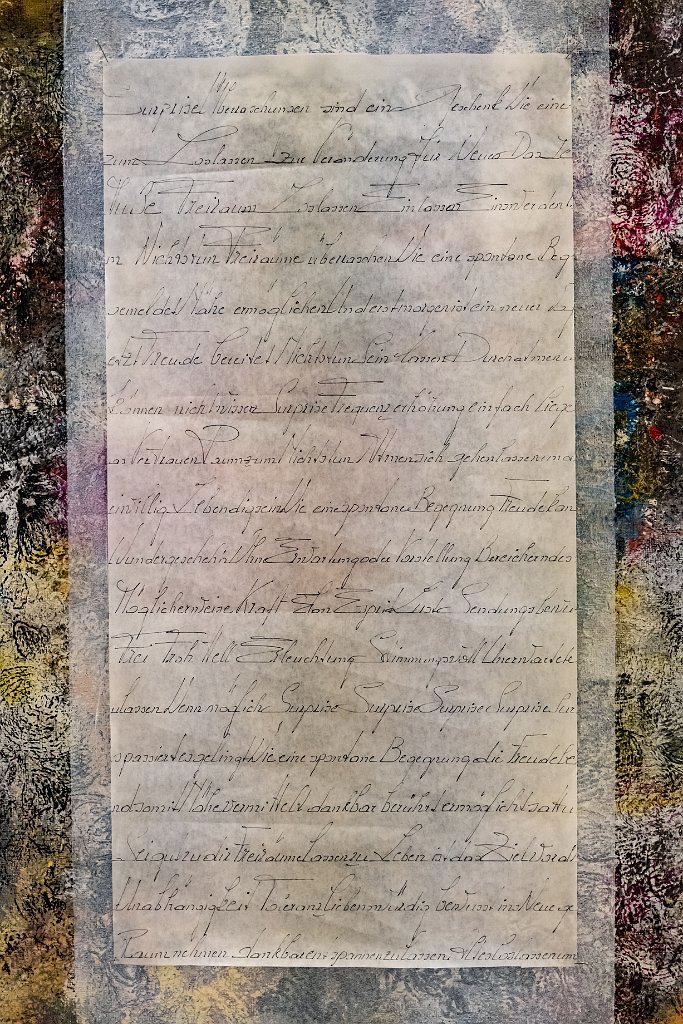 Surprise Überraschungen sind ein Geschenk Wie eine
zum Loslassen zur Veränderung für Neues Das
Muße Freiraum Loslassen Einlassen Einswerden
Nichtstun Freiräume überraschen Wie eine spontane Beg
Nähe ermöglichen Und erst morgen ist ein neuer Tag
Freude bereitet Nichtstun Sein lassen Durchatmen
können nicht wissen Surprise Frequenzerhöhung einfach liege
Vertrauen Raum zum Nichtstun Atmen sich gehen lassen und
Lebendig sein Wie eine spontane Begegnung Freude kan
Wunder geschehn Ohne Erwartung oder Vorstellung Bereicherndes
Möglicherweise Kraft Elan Esprit Liebe Sendungsbewu
Frei Froh Hell Erleuchtung Stimmungsvoll Unerwartete
ulassen Wenn möglich Surprise Surprise Surprise Surprise
spaziert es gelingt Wie eine spontane Begegnung die Freude be
nd somit Nähe vermittelt dankbar berührt ermöglicht
Sei gut zu dir Freiräume lassen zu Leben ist das Ziel
Unabhängigkeit Toleranz liebenswürdig bewusst ins Neue ge
Raum nehmen dankbar entspannen zulassen Alles loslassen um